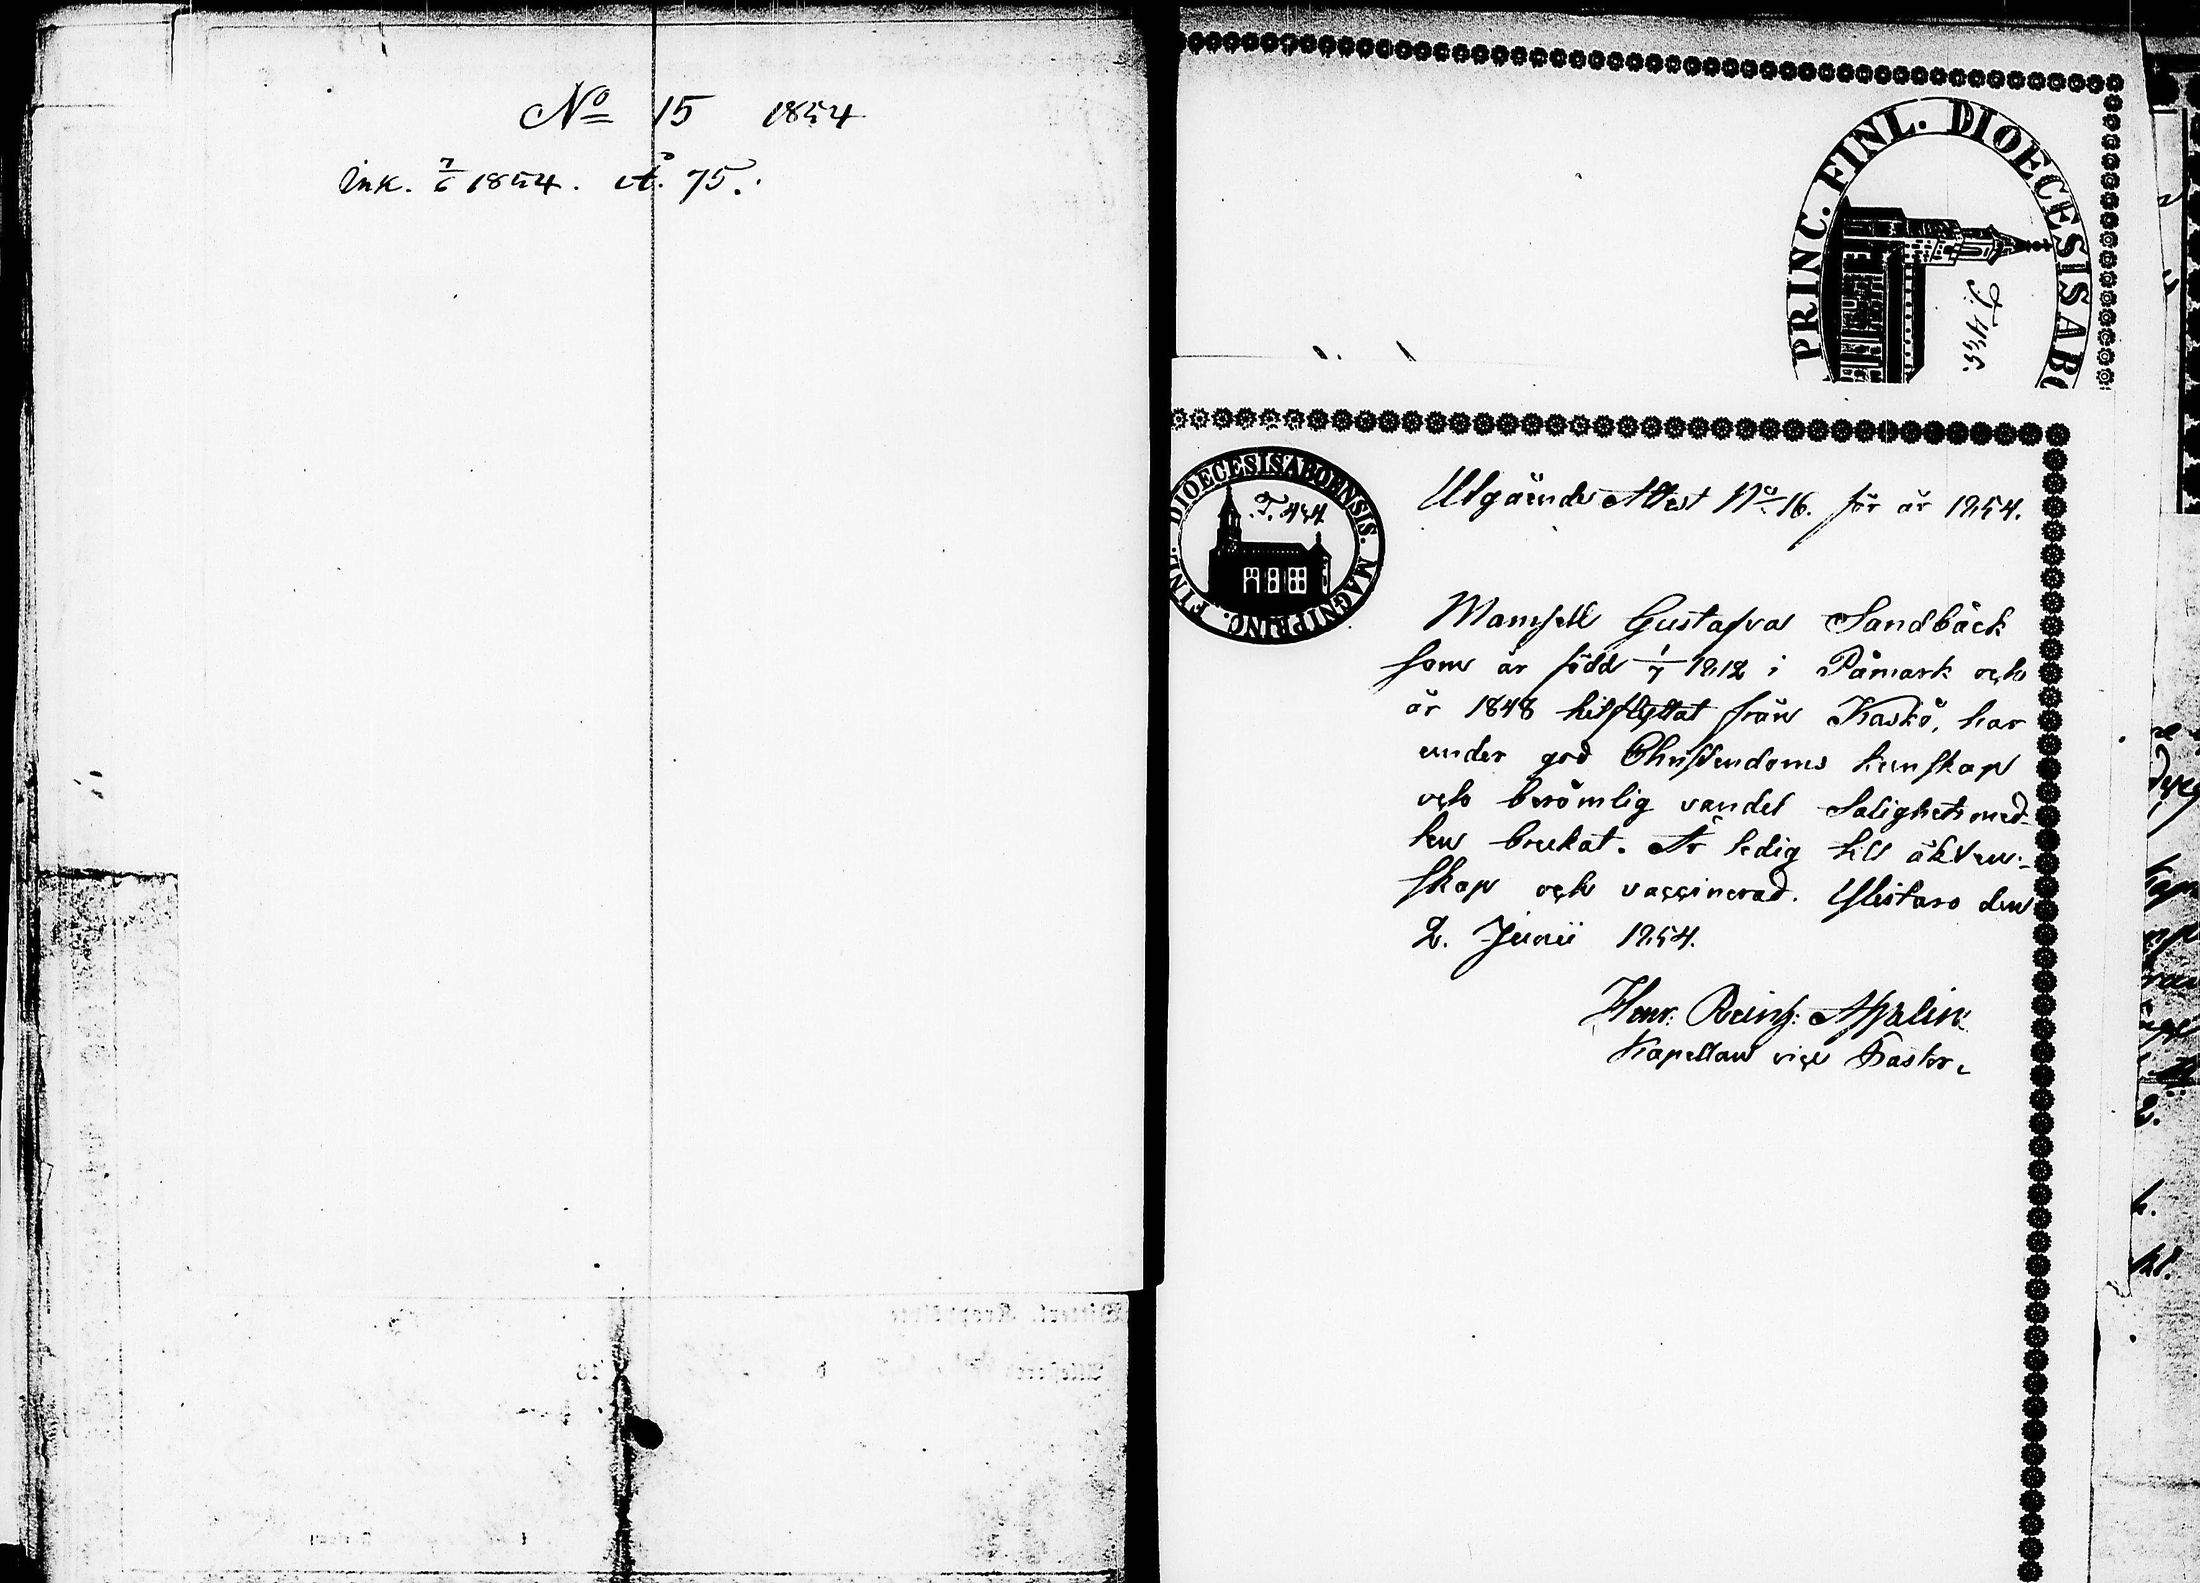 No 15 1854
Ink. 7/6 1854. A. 75.
PRINC. FINL. DIOECESIS ABO
T. 455.
DIOECESIS ABOENSIS. MAGNI PRINC. FINL.
T. 454
Utgående Attest No 16. för år 1854.
Mamsell Gustafva Sandbäck
som är född 1/7 1812 i Påmark och
år 1848 hitflyttat från Kaskö, har
under god Christendoms kunskap
och berömlig vandel Salighetsmed-
len brukat. Är ledig till äkten-
skap och vaccinerad. Ylistaro den
2. Junii 1854.
Henr. Reinh.
Kapellan vice Pastor.